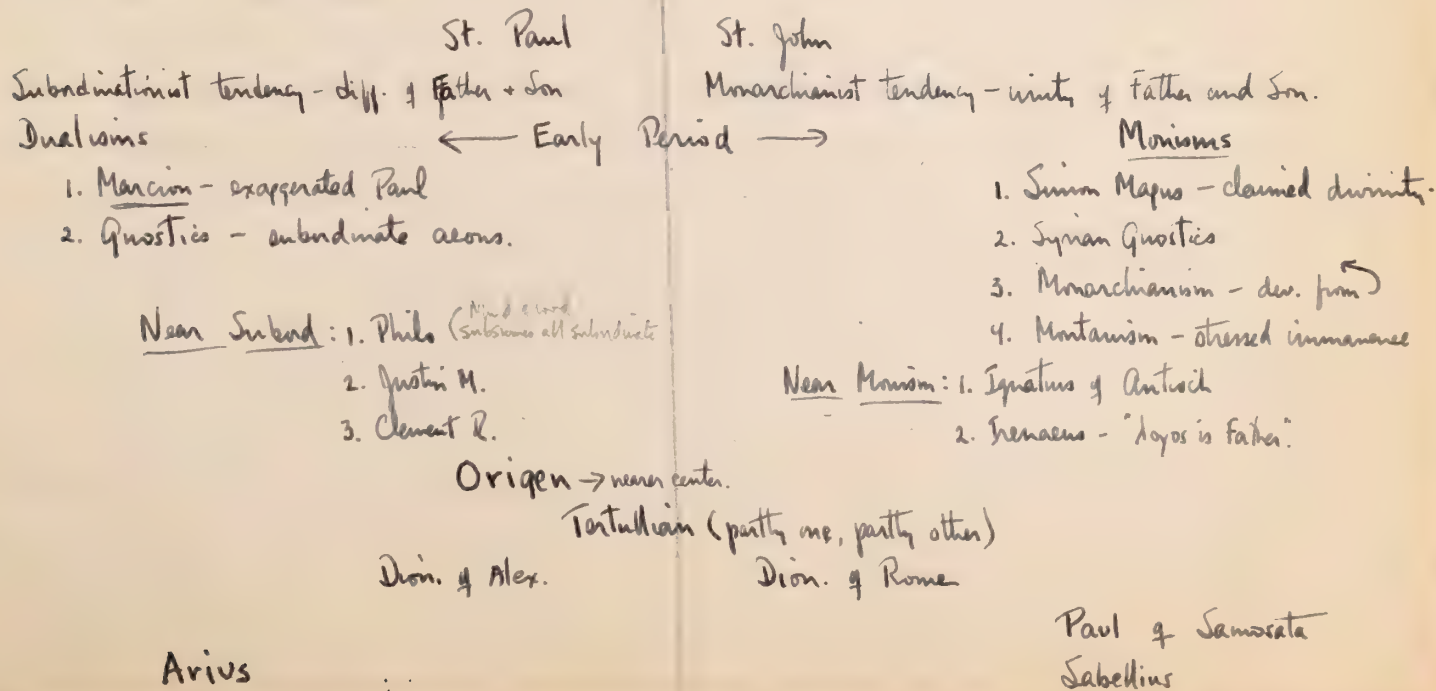 St. Paul
Subordinationist tendency - diff. of Father + Son
Dualisms
1. Marcion - exaggerated Paul
2. Gnostics - subordinate aeons.
Near Subord: 1. Philo (subsumes all subordinate
2. Justin M.
3. Clement R.
St. John
Monarchianist tendency - unity of Father and Son.
← Early Period →
Monisms
1. Simon Magus - claimed divinity.
2. Syrian Gnostics
3. Monarchianism - dev. from
4. Montanism - stressed immanence
Near Monism: 1. Ignatius of Antioch
2. Irenaeus - "λογος is Father".
Origen → nearer center.
Tertullian (partly one, partly other)
Dion. of Alex.
Dion. of Rome
Arius
Paul of Samosata
Sabellius